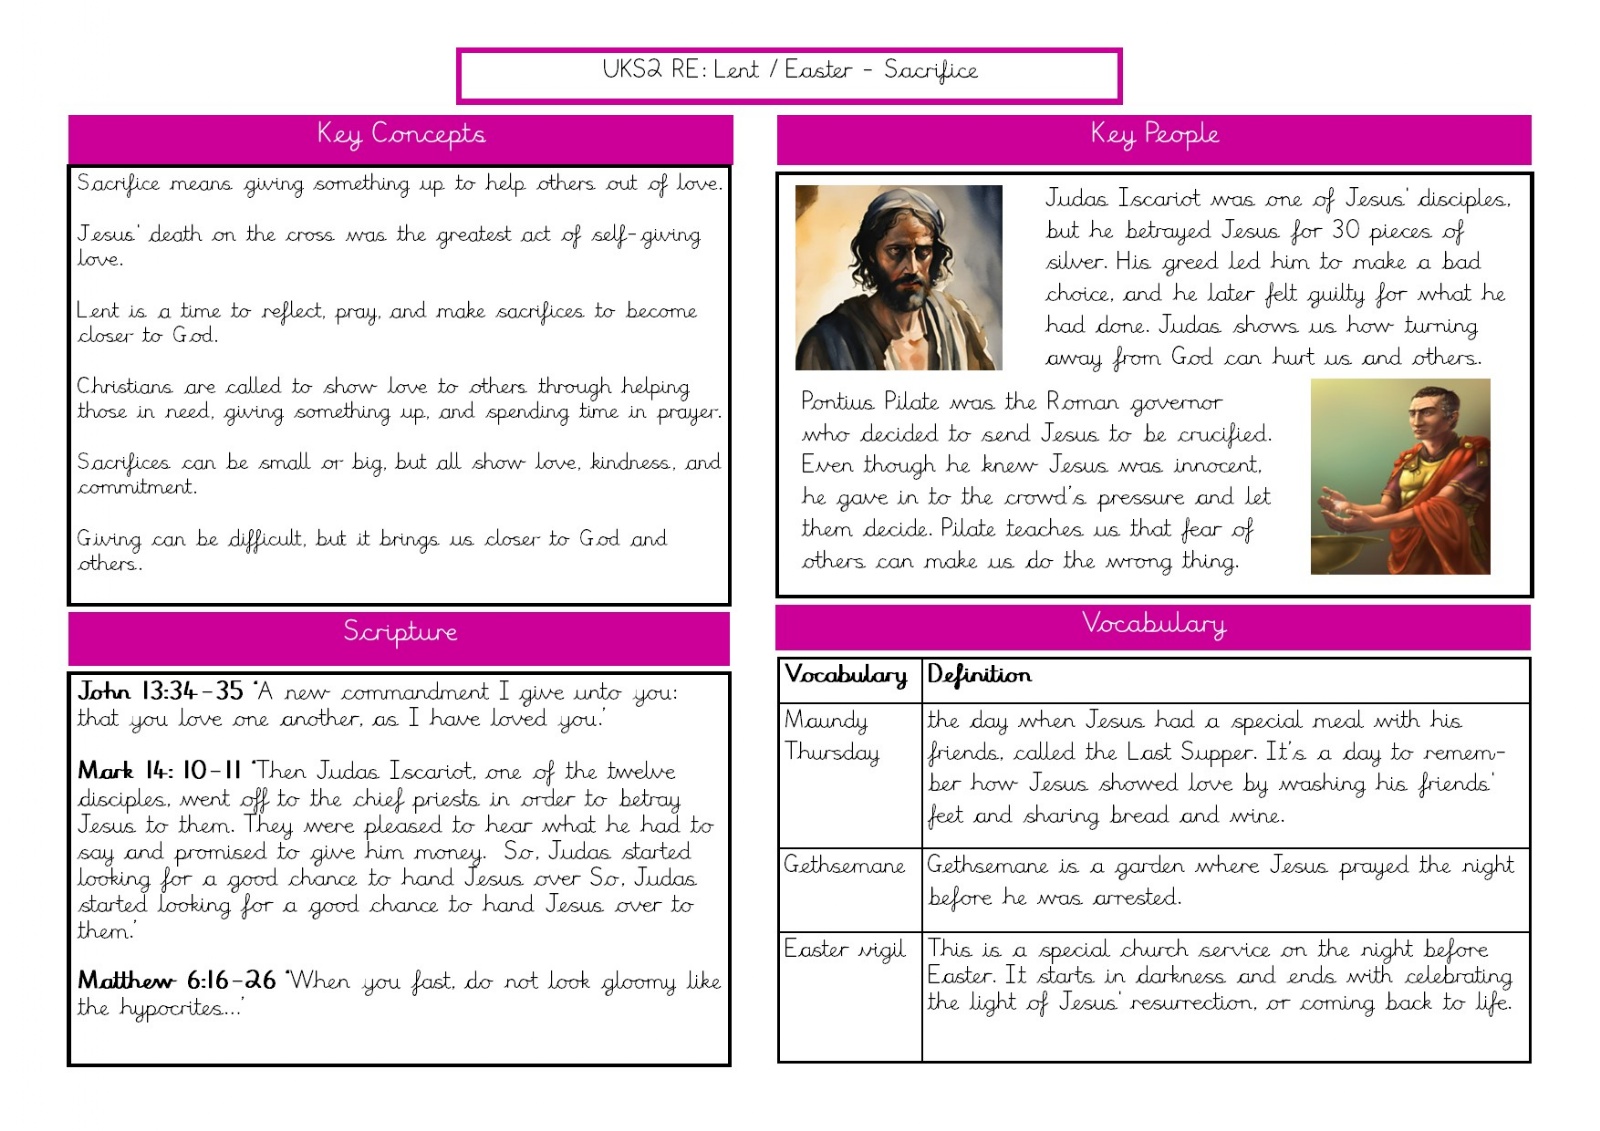 UKS2 RE: Lent / Easter - Sacrifice
Key Concepts
Sacrifice means giving something up to help others out of love.
Jesus' death on the cross was the greatest act of self-giving
love.
Lent is a time to reflect, pray, and make sacrifices to become
closer to God.
Christians are called to show love to others through helping
those in need, giving something up, and spending time in prayer.
Sacrifices can be small or big, but all show love, kindness, and
commitment.
Giving can be difficult, but it brings us closer to God and
others.
Key People
Judas Iscariot was one of Jesus' disciples,
but he betrayed Jesus for 30 pieces of
silver. His greed led him to make a bad
choice, and he later felt guilty for what he
had done. Judas shows us how turning
away from God can hurt us and others.
Pontius Pilate was the Roman governor
who decided to send Jesus to be crucified.
Even though he knew Jesus was innocent,
he gave in to the crowd's pressure and let
them decide. Pilate teaches us that fear of
others can make us do the wrong thing.
Scripture
John 13:34-35 'A new commandment I give unto you:
that you love one another, as I have loved you.'
Mark 14: 10-11 'Then Judas Iscariot, one of the twelve
disciples, went off to the chief priests in order to betray
Jesus to them. They were pleased to hear what he had to
say and promised to give him money.  So, Judas started
looking for a good chance to hand Jesus over So, Judas
started looking for a good chance to hand Jesus over to
them.'
Matthew 6:16-26 'When you fast, do not look gloomy like
the hypocrites...'
Vocabulary
Vocabulary Definition
Maundy Thursday
the day when Jesus had a special meal with his
friends, called the Last Supper. It's a day to remem-
ber how Jesus showed love by washing his friends'
feet and sharing bread and wine.
Gethsemane
Gethsemane is a garden where Jesus prayed the night
before he was arrested.
Easter vigil
This is a special church service on the night before
Easter. It starts in darkness and ends with celebrating
the light of Jesus' resurrection, or coming back to life.